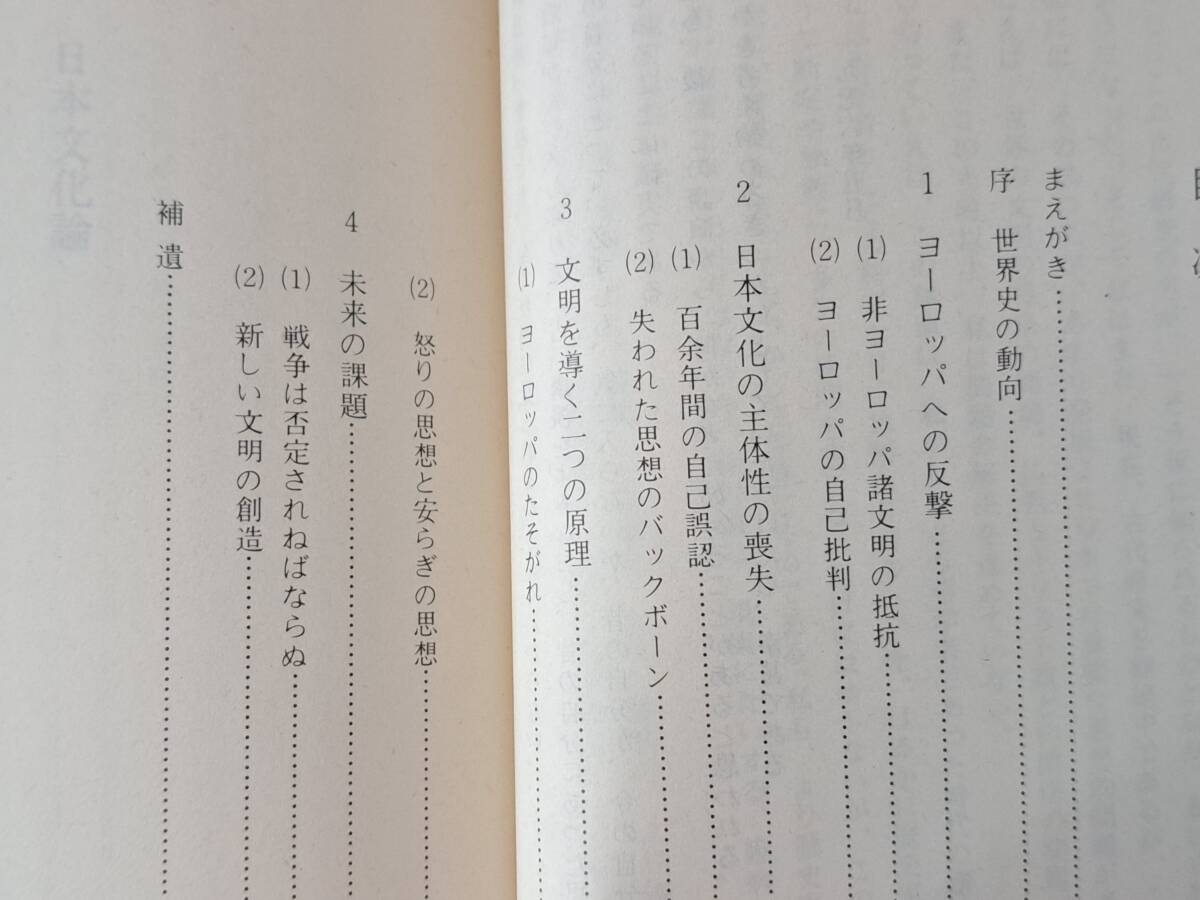 目次
まえがき
序 世界史の動向
1 ヨーロッパへの反撃
(1) 非ヨーロッパ諸文明の抵抗
(2) ヨーロッパの自己批判
2 日本文化の主体性の喪失
(1) 百余年間の自己誤認
(2) 失われた思想のバックボーン
3 文明を導く二つの原理
(1) ヨーロッパのたそがれ
(2) 怒りの思想と安らぎの思想
4 未来の課題
(1) 戦争は否定されねばならぬ
(2) 新しい文明の創造
補遺
日本文化論